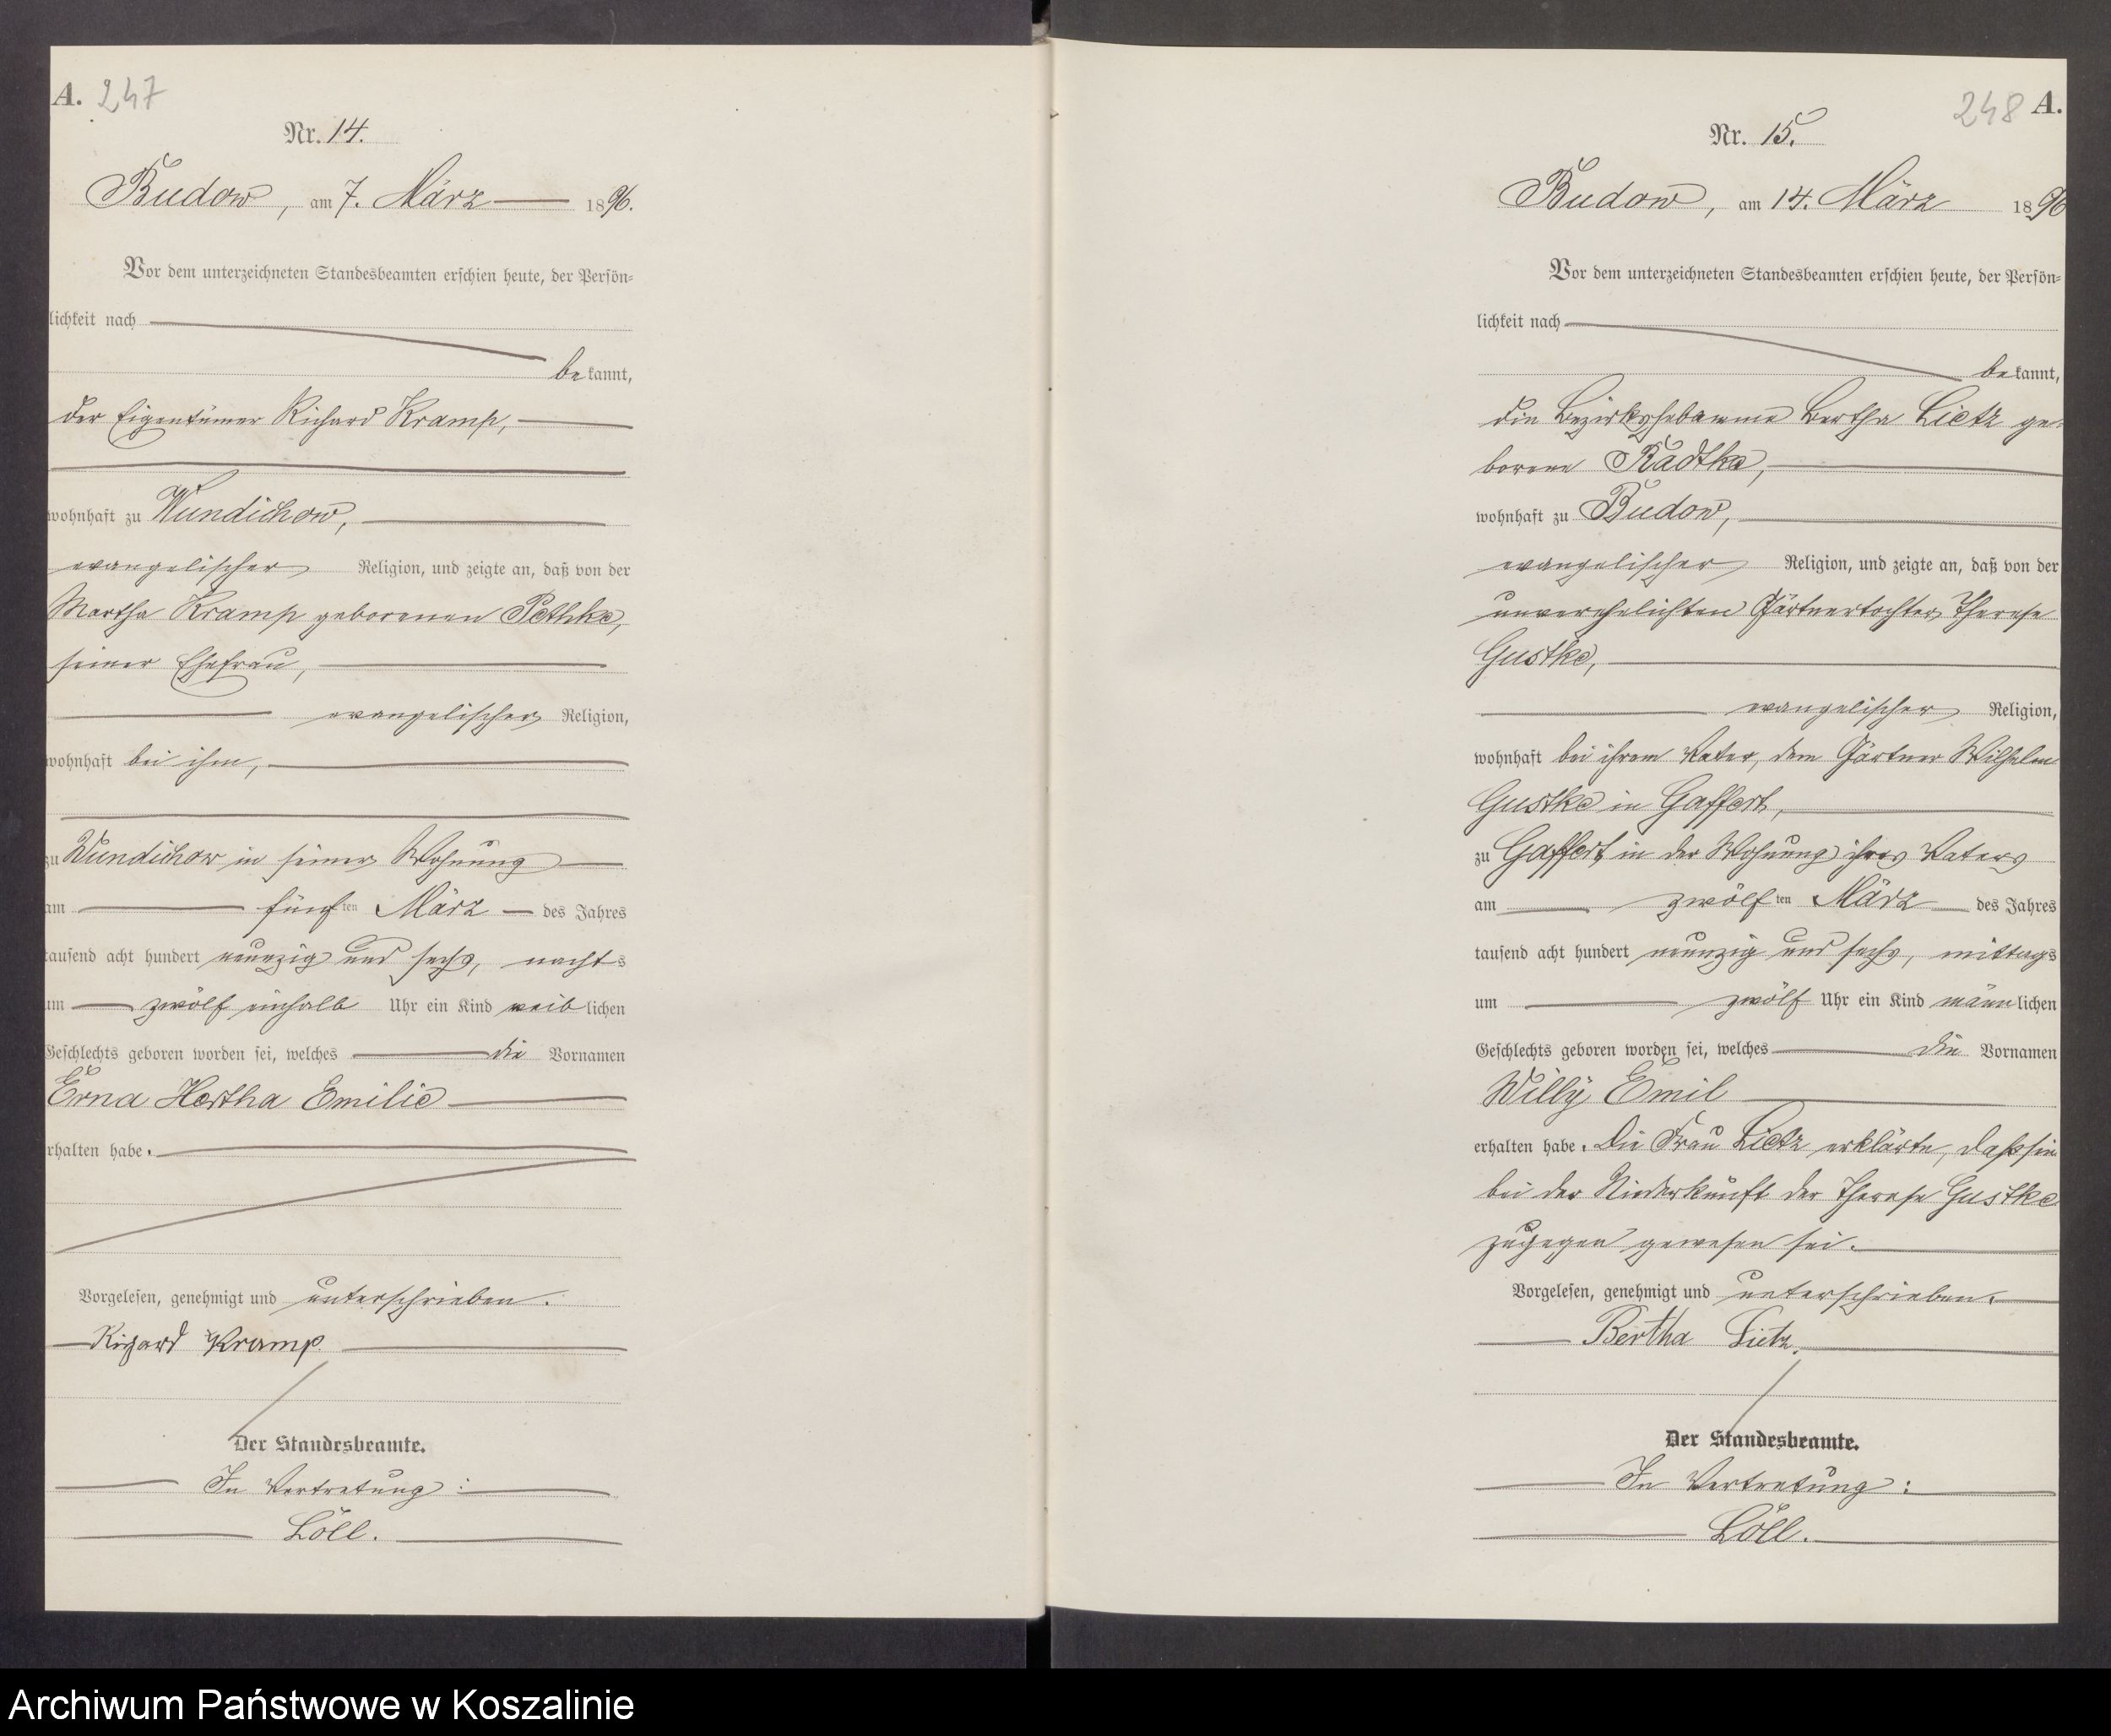 A. 247
Nr. 14.
Budow, am 7. März 1896.
Vor dem unterzeichneten Standesbeamten erschien heute, der Persön-
lichkeit nach
bekannt,
der Eigentümer Richard Kramp,
wohnhaft zu Wundichow,
evangelischer Religion, und zeigte an, daß von der
Martha Kramp geborenen Pethke,
seiner Ehefrau,
evangelischer Religion,
wohnhaft bei ihm,
zu Wundichow in seiner Wohnung
am fünften März des Jahres
tausend acht hundert neunzig und sechs, nachts
um zwölf einhalb Uhr ein Kind weiblichen
Geschlechts geboren worden sei, welches die Vornamen
Erna Hertha Emilie
erhalten habe.
Vorgelesen, genehmigt und unterschrieben.
Richard Kramp.
Der Standesbeamte.
In Vertretung:
Löll.
248 A.
Nr. 15.
Budow, am 14. März 1896
Vor dem unterzeichneten Standesbeamten erschien heute, der Persön-
lichkeit nach
bekannt,
die Bezirkshebamme Bertha Lietz ge-
borene Radtke,
wohnhaft zu Budow,
evangelischer Religion, und zeigte an, daß von der
unverehelichten Gärtnertochter Therese
Gustke,
evangelischer Religion,
wohnhaft bei ihrem Vater, dem Gärtner Wilhelm
Gustke in Gaffert,
zu Gaffert in der Wohnung ihres Vaters
am zwölften März des Jahres
tausend acht hundert neunzig und sechs, mittags
um zwölf Uhr ein Kind männlichen
Geschlechts geboren worden sei, welches die Vornamen
Willy Emil
erhalten habe. Die Frau Lietz erklärte, daß sie
bei der Niederkunft der Therese Gustke
zugegen gewesen sei.
Vorgelesen, genehmigt und unterschrieben.
Bertha Lietz.
Der Standesbeamte.
In Vertretung:
Löll.
Archiwum Państwowe w Koszalinie